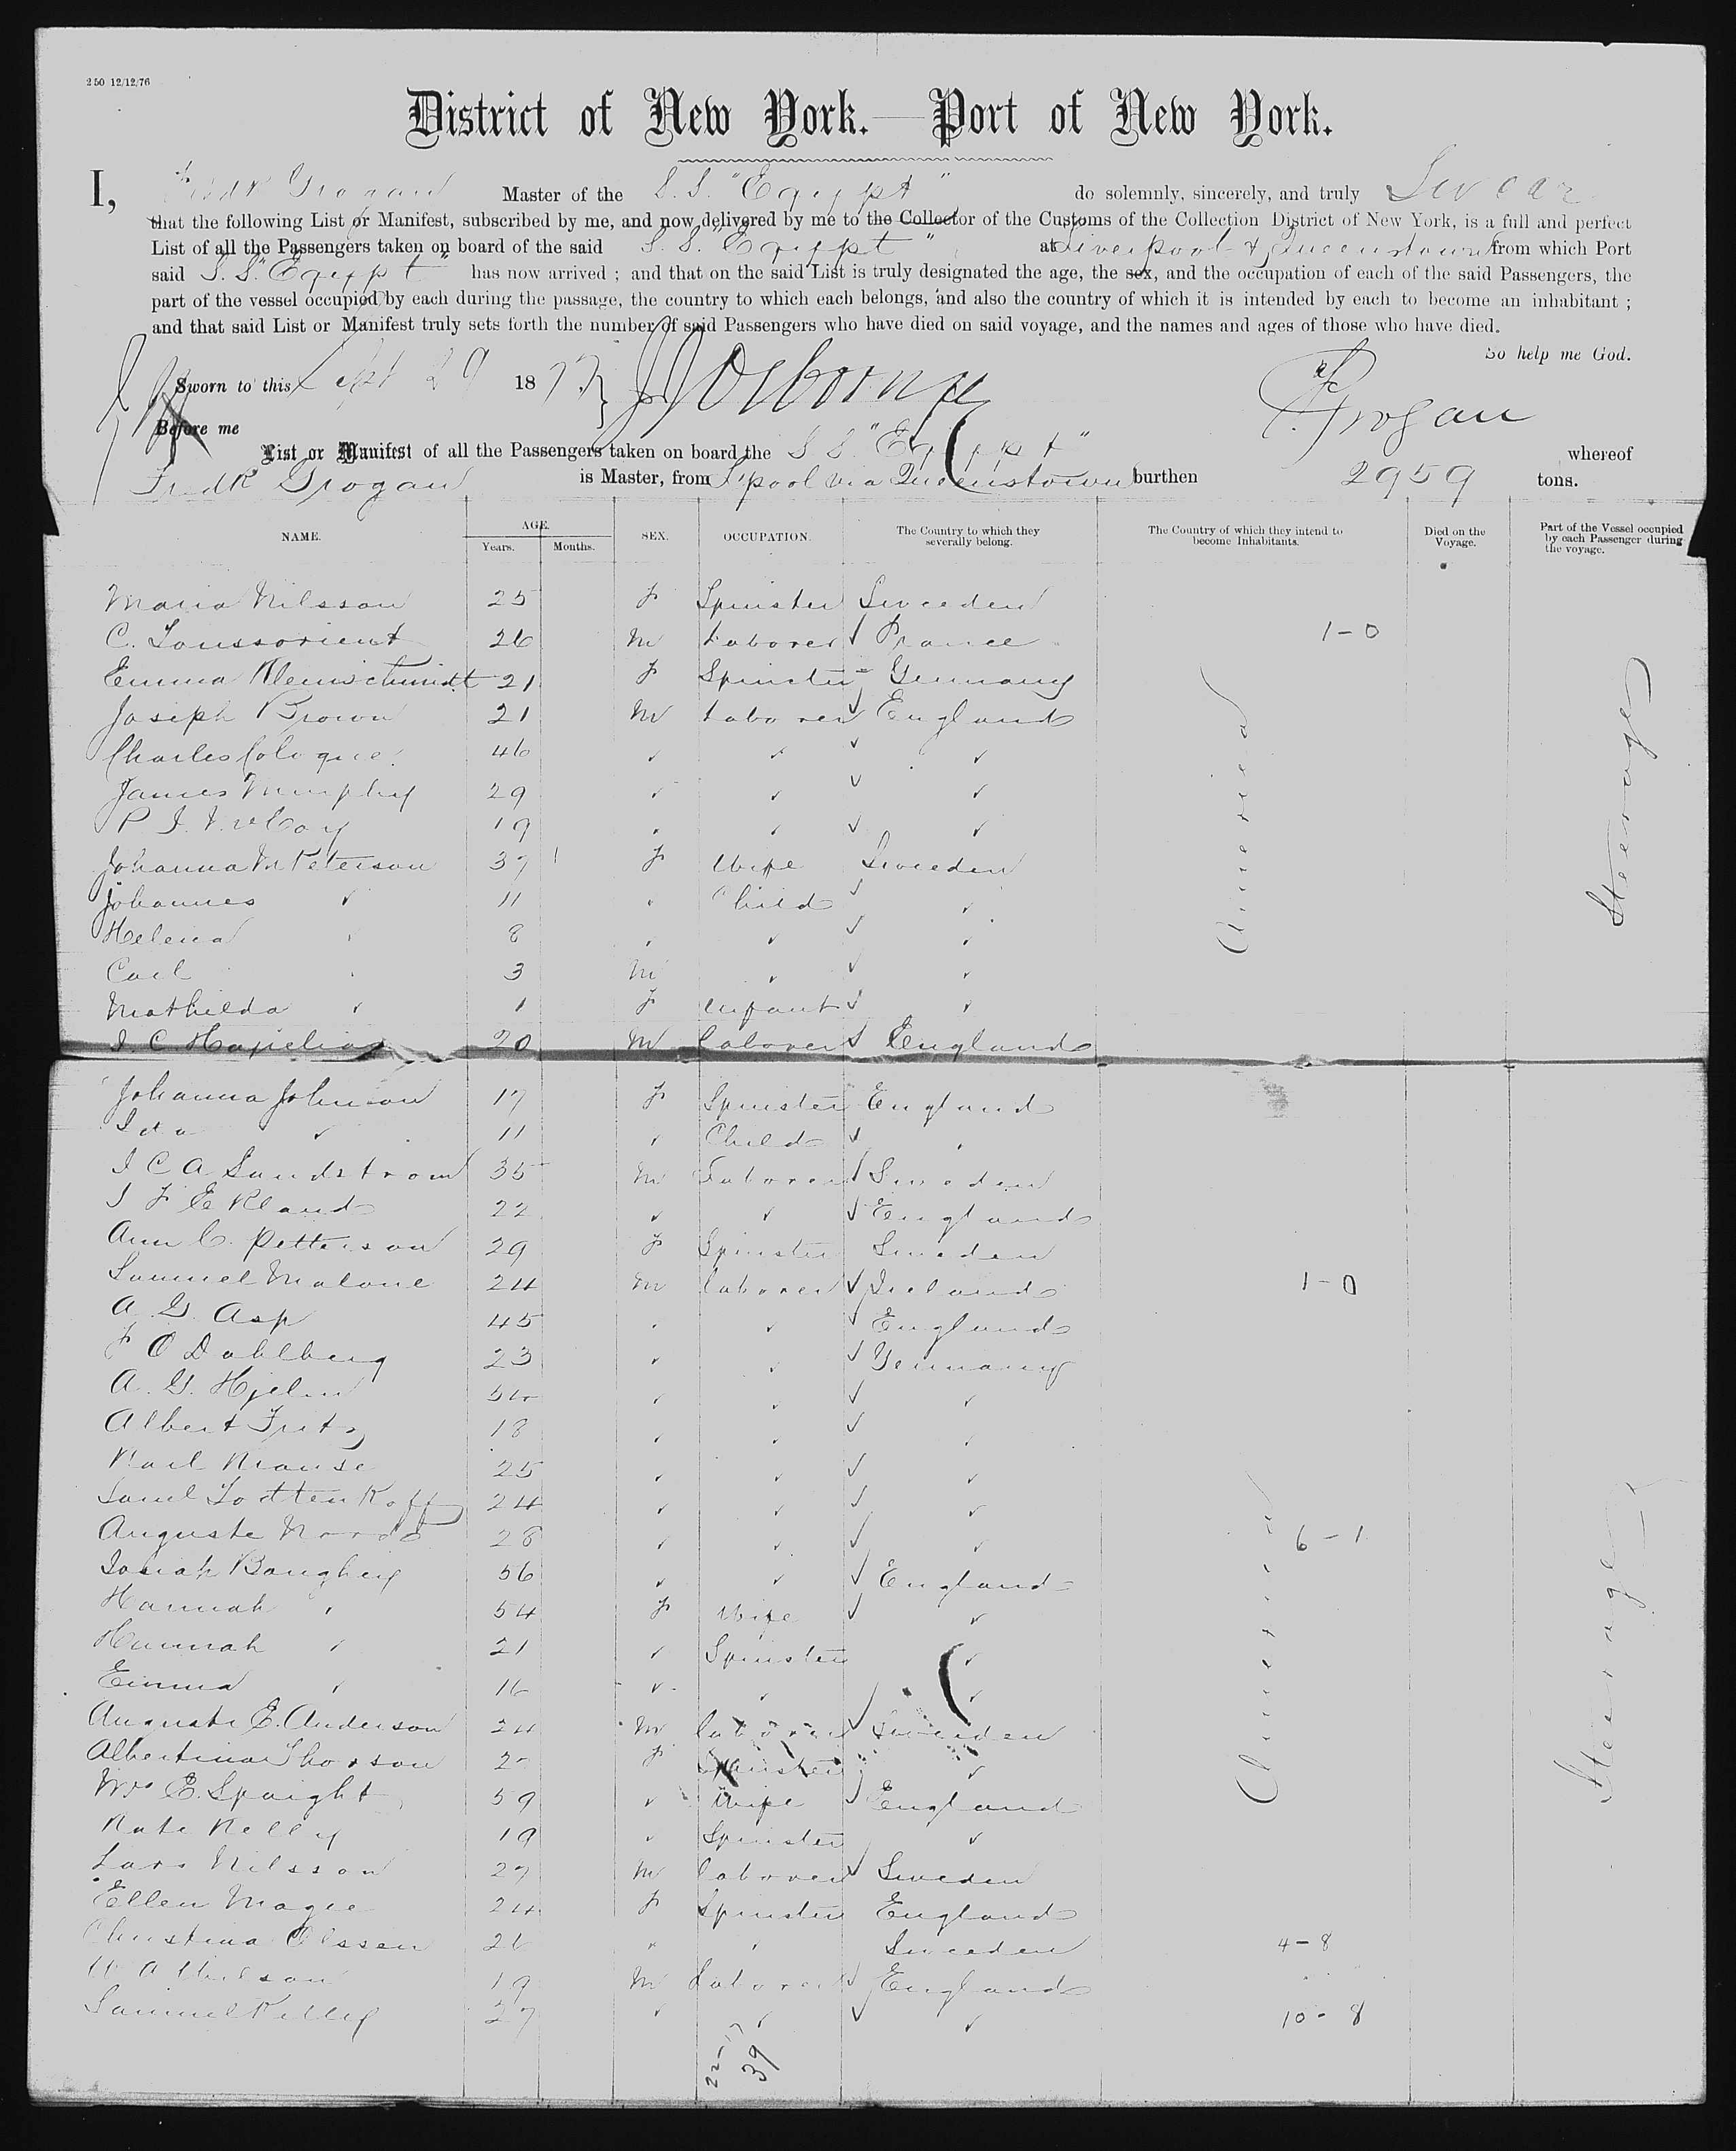 250 12/12/76
District of New York.—Port of New York.
I, Fredk Grogan Master of the S.S. "Egypt" do solemnly, sincerely, and truly Swear
that the following List or Manifest, subscribed by me, and now delivered by me to the Collector of the Customs of the Collection District of New York, is a full and perfect
List of all the Passengers taken on board of the said S.S. "Egypt" at Liverpool & Queenstown from which Port
said S.S. "Egypt" has now arrived ; and that on the said List is truly designated the age, the sex, and the occupation of each of the said Passengers, the
part of the vessel occupied by each during the passage, the country to which each belongs, and also the country of which it is intended by each to become an inhabitant ;
and that said List or Manifest truly sets forth the number of said Passengers who have died on said voyage, and the names and ages of those who have died.
So help me God.
Sworn to this Sept 29 1877 Osborne
F Grogan
Before me
List or Manifest of all the Passengers taken on board the S S. "Egypt" whereof
Fredk Grogan is Master, from L'pool via Queenstown burthen 2959 tons.
NAME. AGE. Years. Months. SEX. OCCUPATION. The Country to which they severally belong. The Country of which they intend to become Inhabitants. Died on the Voyage. Part of the Vessel occupied by each Passenger during the voyage.
Maria Nilsson 25 F Spinster Sweeden
C. 26 M Laborer France 1-0
Emma Kleinschmidt 21 F Spinster Germany
Joseph Brown 21 M Laborer England
Charles 46 " " "
James Murphy 29 " " "
P. J. 19 " " "
Johanna M Peterson 37 F Wife Sweeden
Johannes " 11 " Child "
Helena " 8 " " "
Carl " 3 M " "
Mathilda " 1 F Infant "
J. C 20 M laborer England
America
Steerage
Johanna Johnson 17 F Spinster England
Ida " 11 " Child "
J C A Sundstrom 35 M Laborer Sweden
J F Ekland 22 " " England
Ann C. Petterson 29 F Spinster Sweden
Samuel Malone 24 M laborer Ireland 1-0
A. G. Asp 45 " " England
F O Dahlberg 23 " " Germany
A. G. Hjelm 54 " " "
Albert Fritz 18 " " "
Karl Krause 25 " " "
24 " " "
Auguste 28 " " " 6-1
Josiah Baughey 56 " " England
Hannah " 54 F Wife "
Hannah " 21 " Spinster "
Emma " 16 " " "
Auguste E. Anderson 24 M laborer Sweeden
Albertina Thorson 2 F Spinster "
Mrs E. Spaight 59 " Wife England
Kate Kelly 19 " Spinster "
Lars Nilsson 27 M laborer Sweden
Ellen Magee 24 F Spinster England
Christina Olssen 26 " " Sweeden 4-8
W A Wilson 19 M Laborer England
Samuel Kelly 27 " " " 10-8
America
Steerage
22-17
39